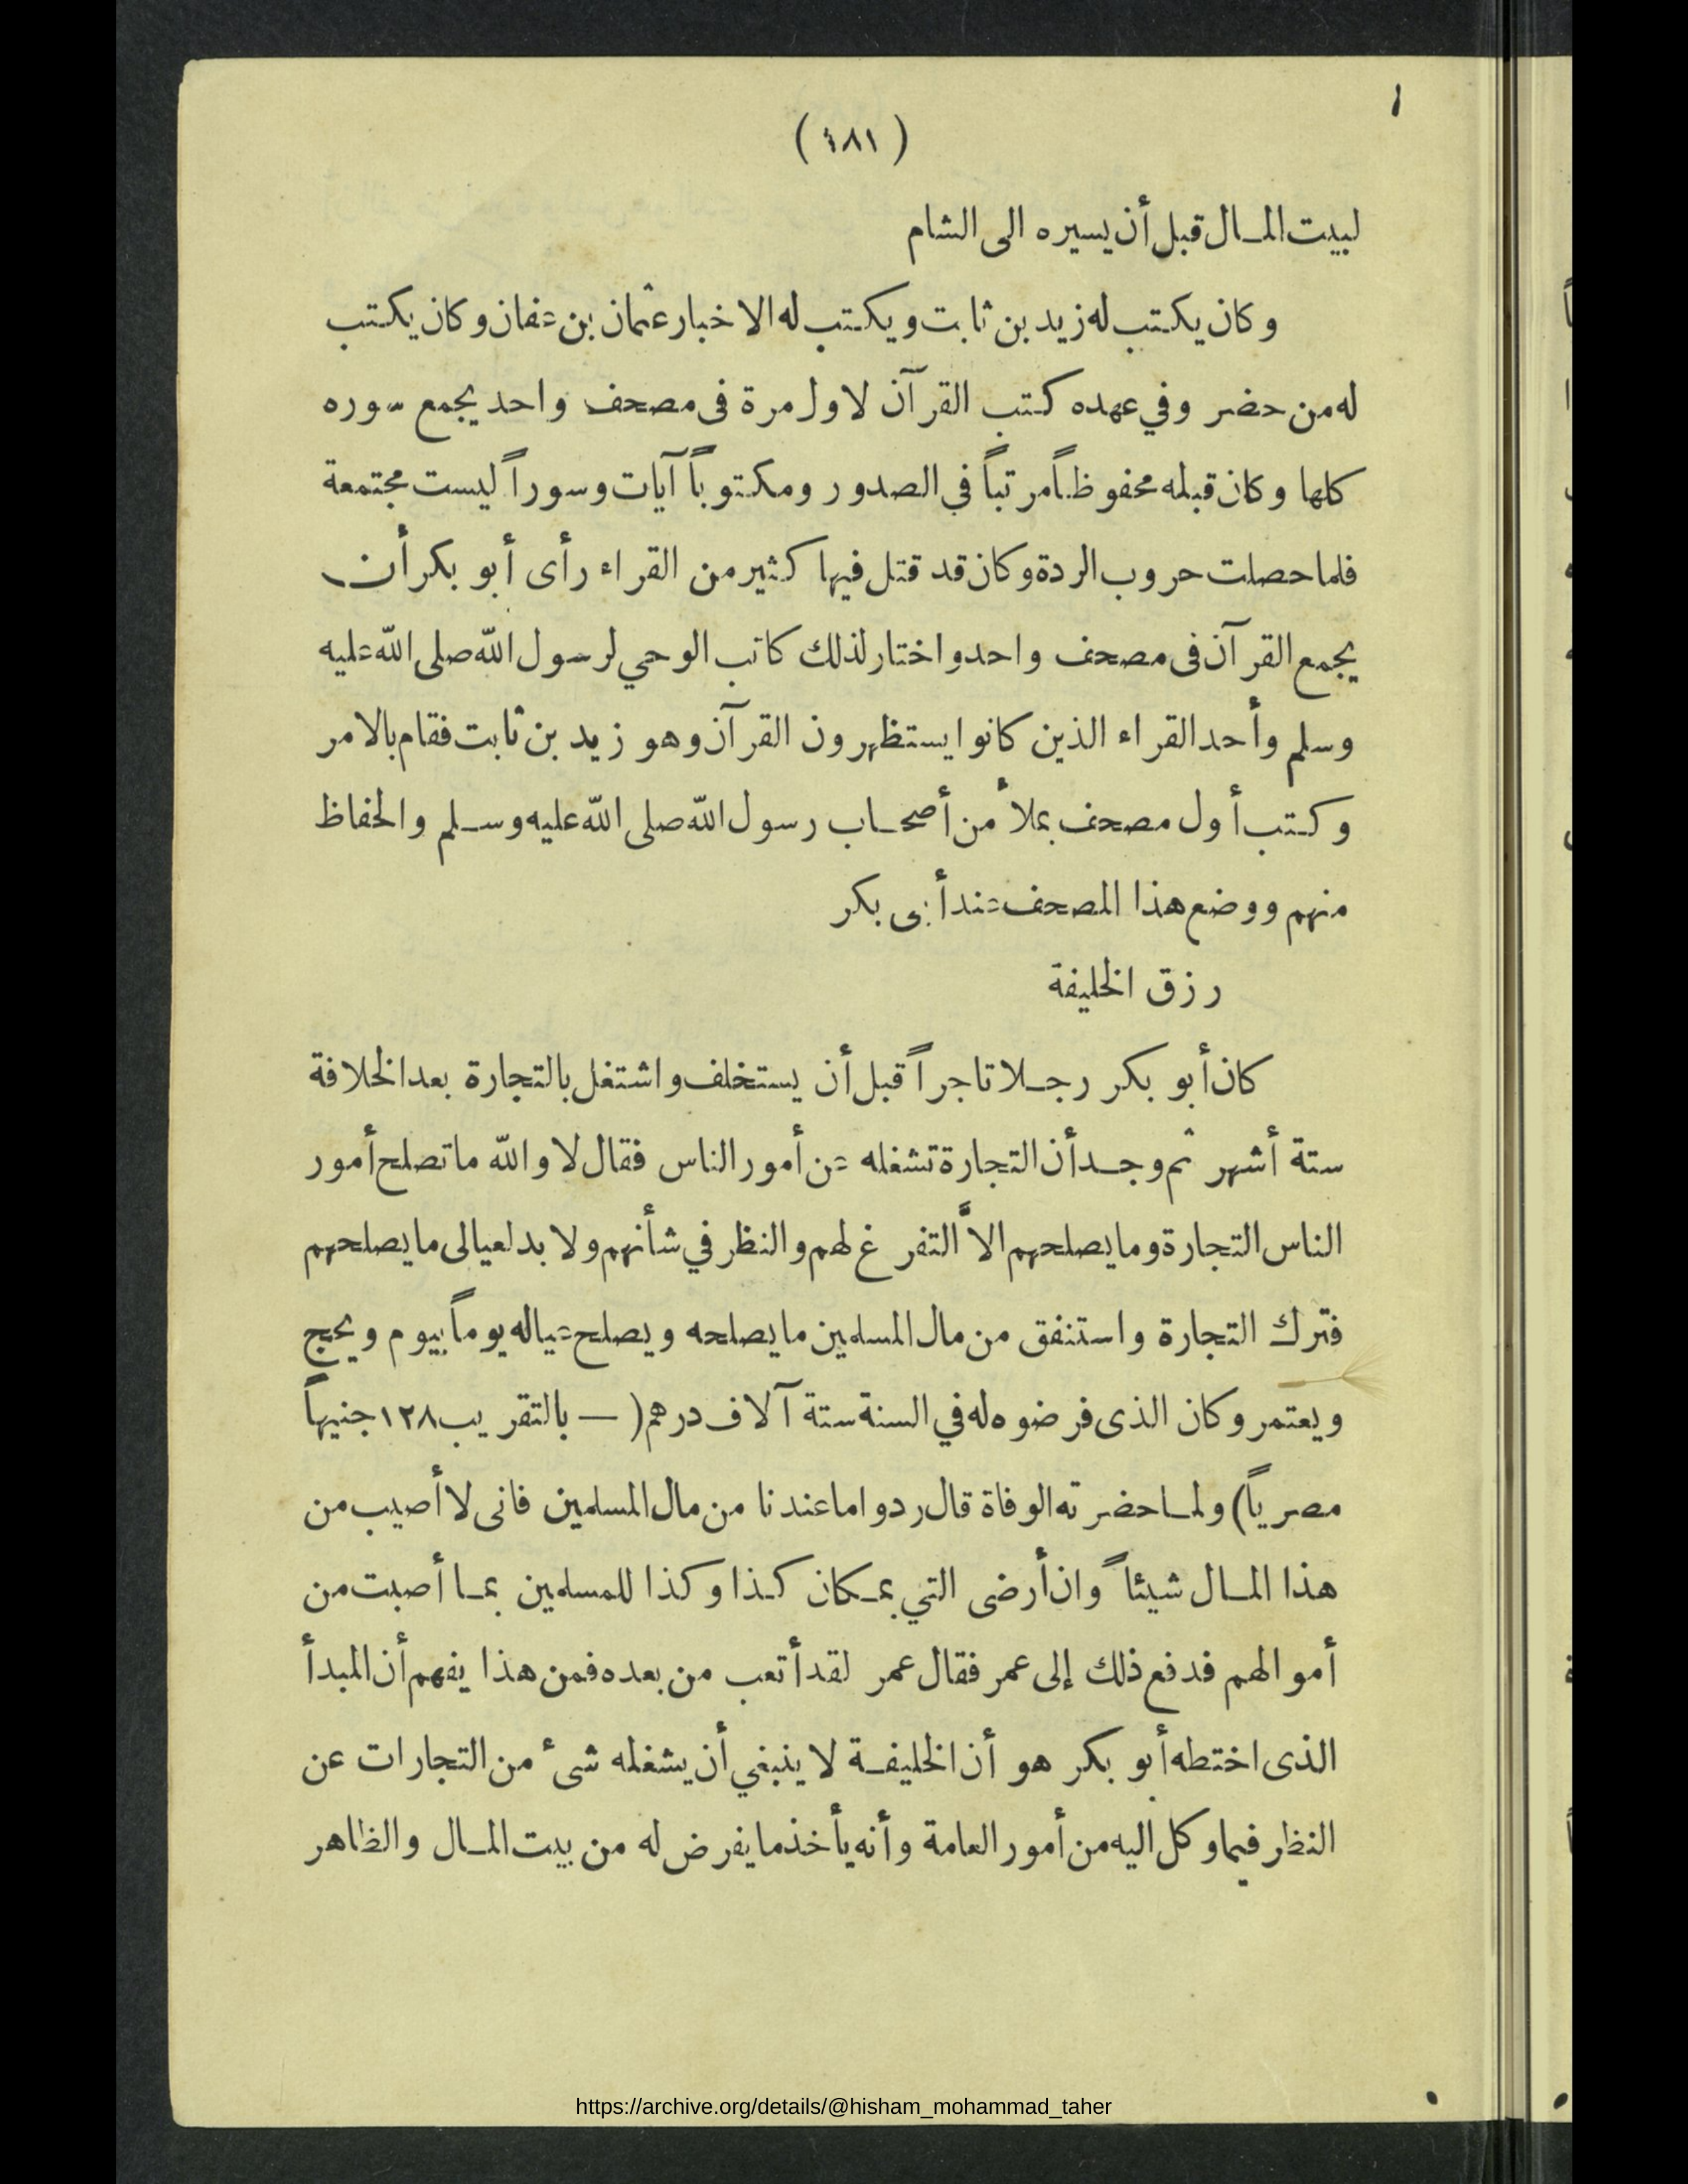 (٤٨١)
لبيت المال قبل أن يسيره الى الشام
وكان يكتب له زيد بن ثابت ويكتب له الاخبار عثمان بن عفان وكان يكتب
له من حضر وفي عهده كتب القرآن لاول مرة فى مصحف واحد يجمع سوره
كلها وكان قبله محفوظاً مرتباً في الصدور ومكتوباً آيات وسوراً ليست مجتمعة
فلما حصلت حروب الردة وكان قد قتل فيها كثير من القراء رأى أبو بكر أن
يجمع القرآن فى مصحف واحد واختار لذلك كاتب الوحي لرسول الله صلى الله عليه
وسلم وأحد القراء الذين كانوا يستظهرون القرآن وهو زيد بن ثابت فقام بالامر
وكتب أول مصحف بملأ من أصحاب رسول الله صلى الله عليه وسلم والحفاظ
منهم ووضع هذا المصحف عند أبى بكر
رزق الخليفة
كان أبو بكر رجلا تاجراً قبل أن يستخلف واشتغل بالتجارة بعد الخلافة
ستة أشهر ثم وجد أن التجارة تشغله عن أمور الناس فقال لا والله ما تصلح أمور
الناس التجارة وما يصلحهم الاَّ التفرغ لهم والنظر في شأنهم ولا بد لعيالى ما يصلحهم
فترك التجارة واستنفق من مال المسلمين ما يصلحه ويصلح عياله يوماً بيوم ويحج
ويعتمر وكان الذى فرضوه له في السنة ستة آلاف درهم (— بالتقريب ١٢٨ جنيهاً
مصرياً) ولما حضرته الوفاة قال ردوا ما عندنا من مال المسلمين فانى لا أصيب من
هذا المال شيئاً وان أرضى التي بمكان كذا وكذا للمسلمين بما أصبت من
أموالهم فدفع ذلك إلى عمر فقال عمر لقد أتعب من بعده فمن هذا يفهم أن المبدأ
الذى اختطه أبو بكر هو أن الخليفة لا ينبغي أن يشغله شئ من التجارات عن
النظر فيما وكل اليه من أمور العامة وأنه يأخذ ما يفرض له من بيت المال والظاهر
https://archive.org/details/@hisham_mohammad_taher